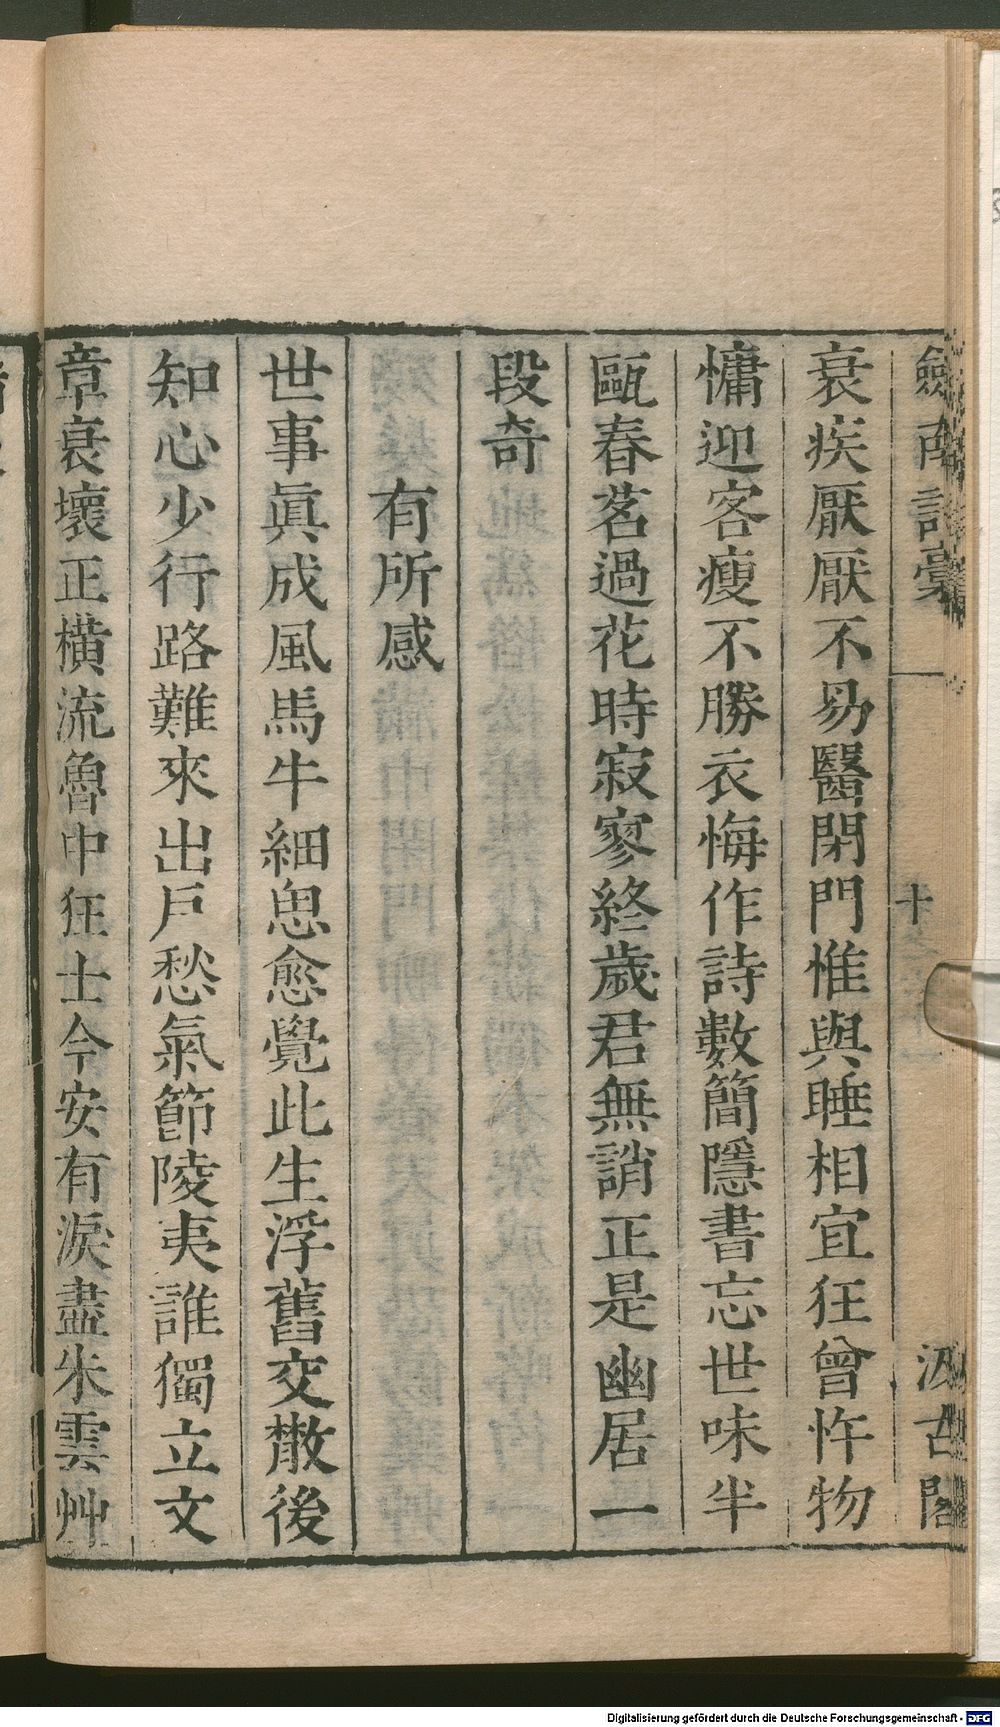 劒南詩稾 十 汲古閣
衰疾厭厭不易醫閑門惟與睡相宜狂曾忤物
慵迎客瘦不勝衣悔作詩數簡隱書忘世味半
甌春茗過花時寂寥終歲君無誚正是幽居一
段奇
有所感
世事眞成風馬牛細思愈覺此生浮舊交散後
知心少行路難來出戶愁氣節陵夷誰獨立文
章衰壞正橫流魯中狂士今安有淚盡朱雲艸
Digitalisierung gefördert durch die Deutsche Forschungsgemeinschaft - DFG